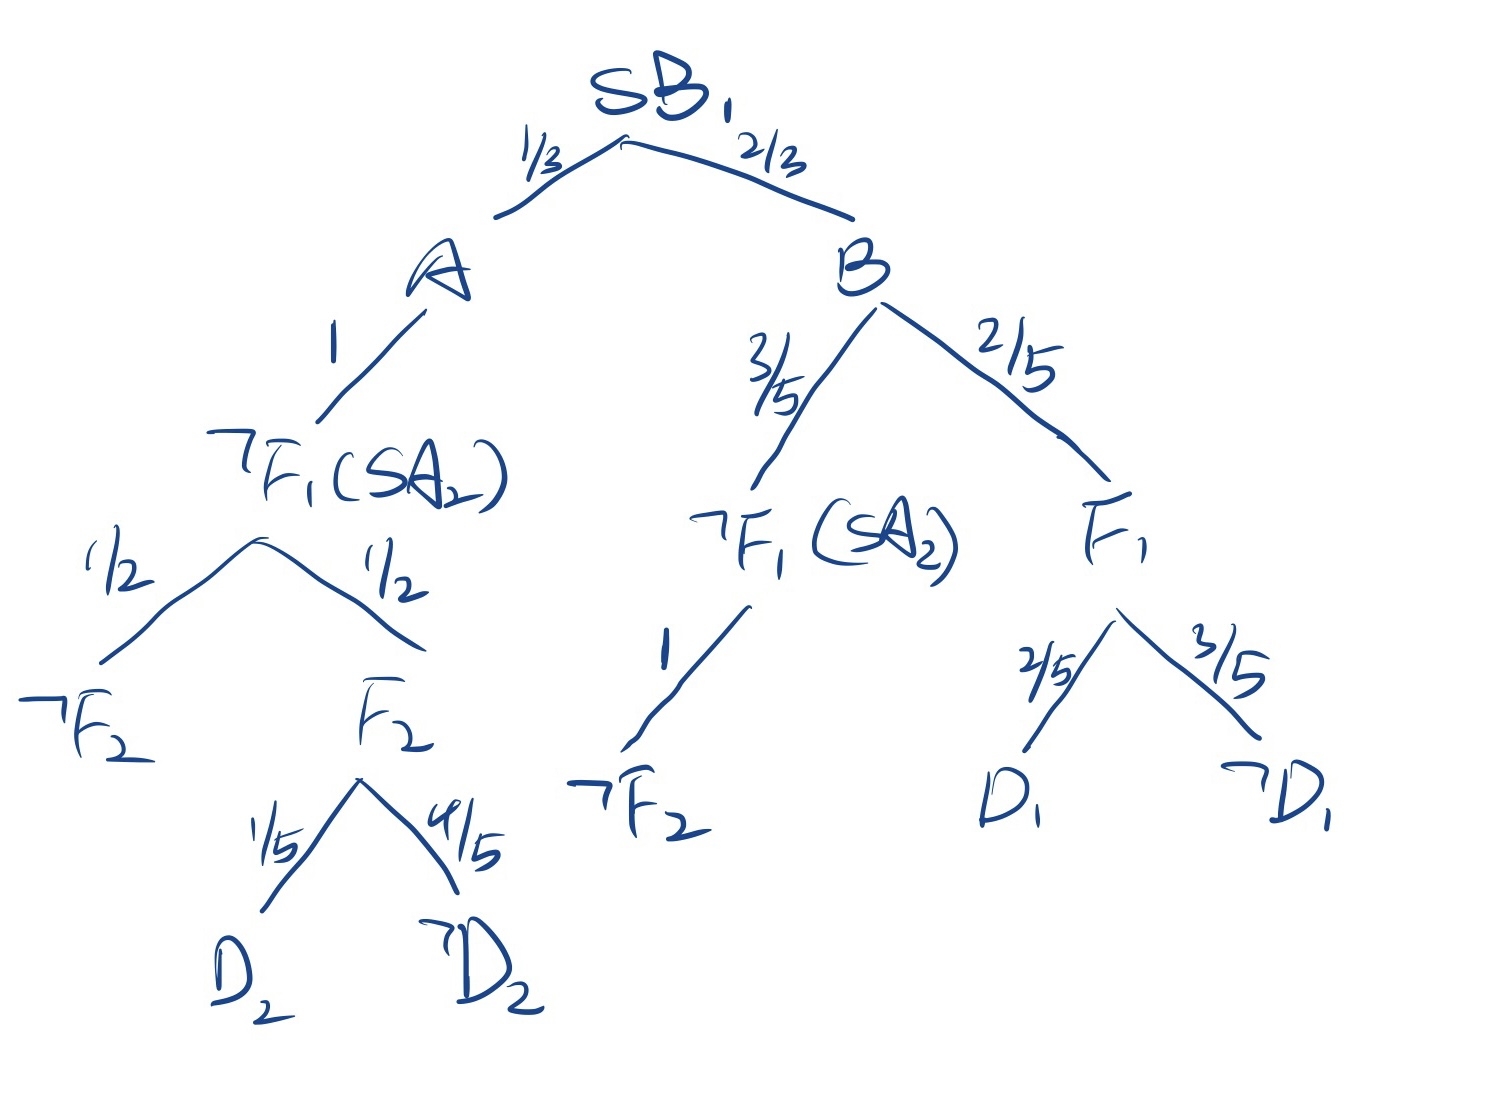 SB₁
1/3 2/3
A B
1 3/5 2/5
¬F₁(SA₂) ¬F₁(SA₂) F₁
1/2 1/2 1 2/5 3/5
¬F₂ F₂ ¬F₂ D₁ ¬D₁
1/5 4/5
D₂ ¬D₂